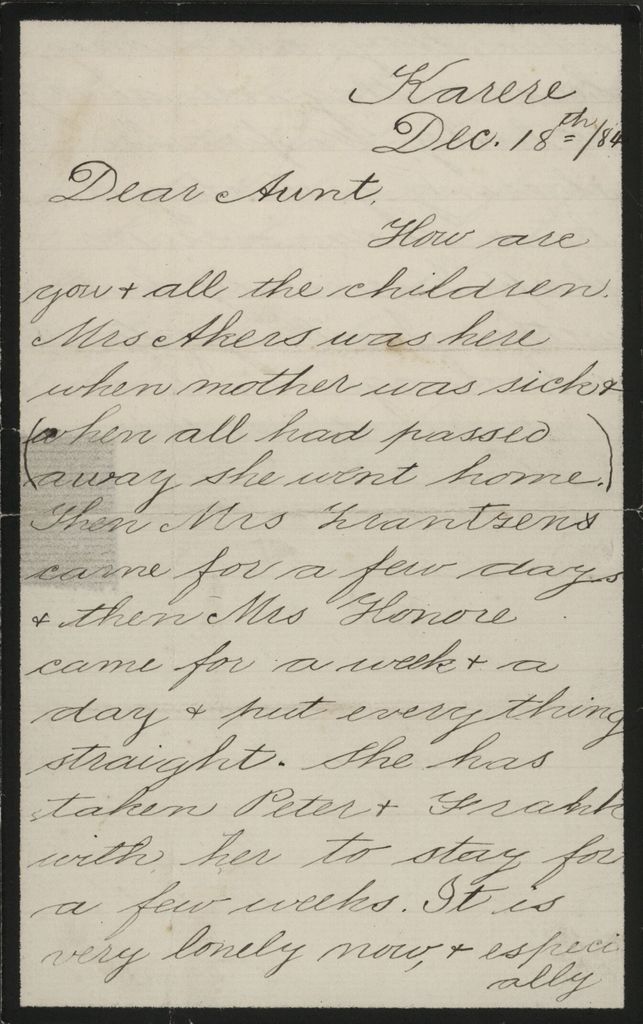 Karere
Dec. 18th/84
Dear Aunt,
How are
you + all the children.
Mrs Akers was here
when mother was sick +
(when all had passed
away she went home.)
Then Mrs Frantzens
came for a few days
+ then Mrs Honore
came for a week + a
day + put every thing
straight. She has
taken Peter + Frank
with her to stay for
a few weeks. It is
very lonely now, + especi
ally